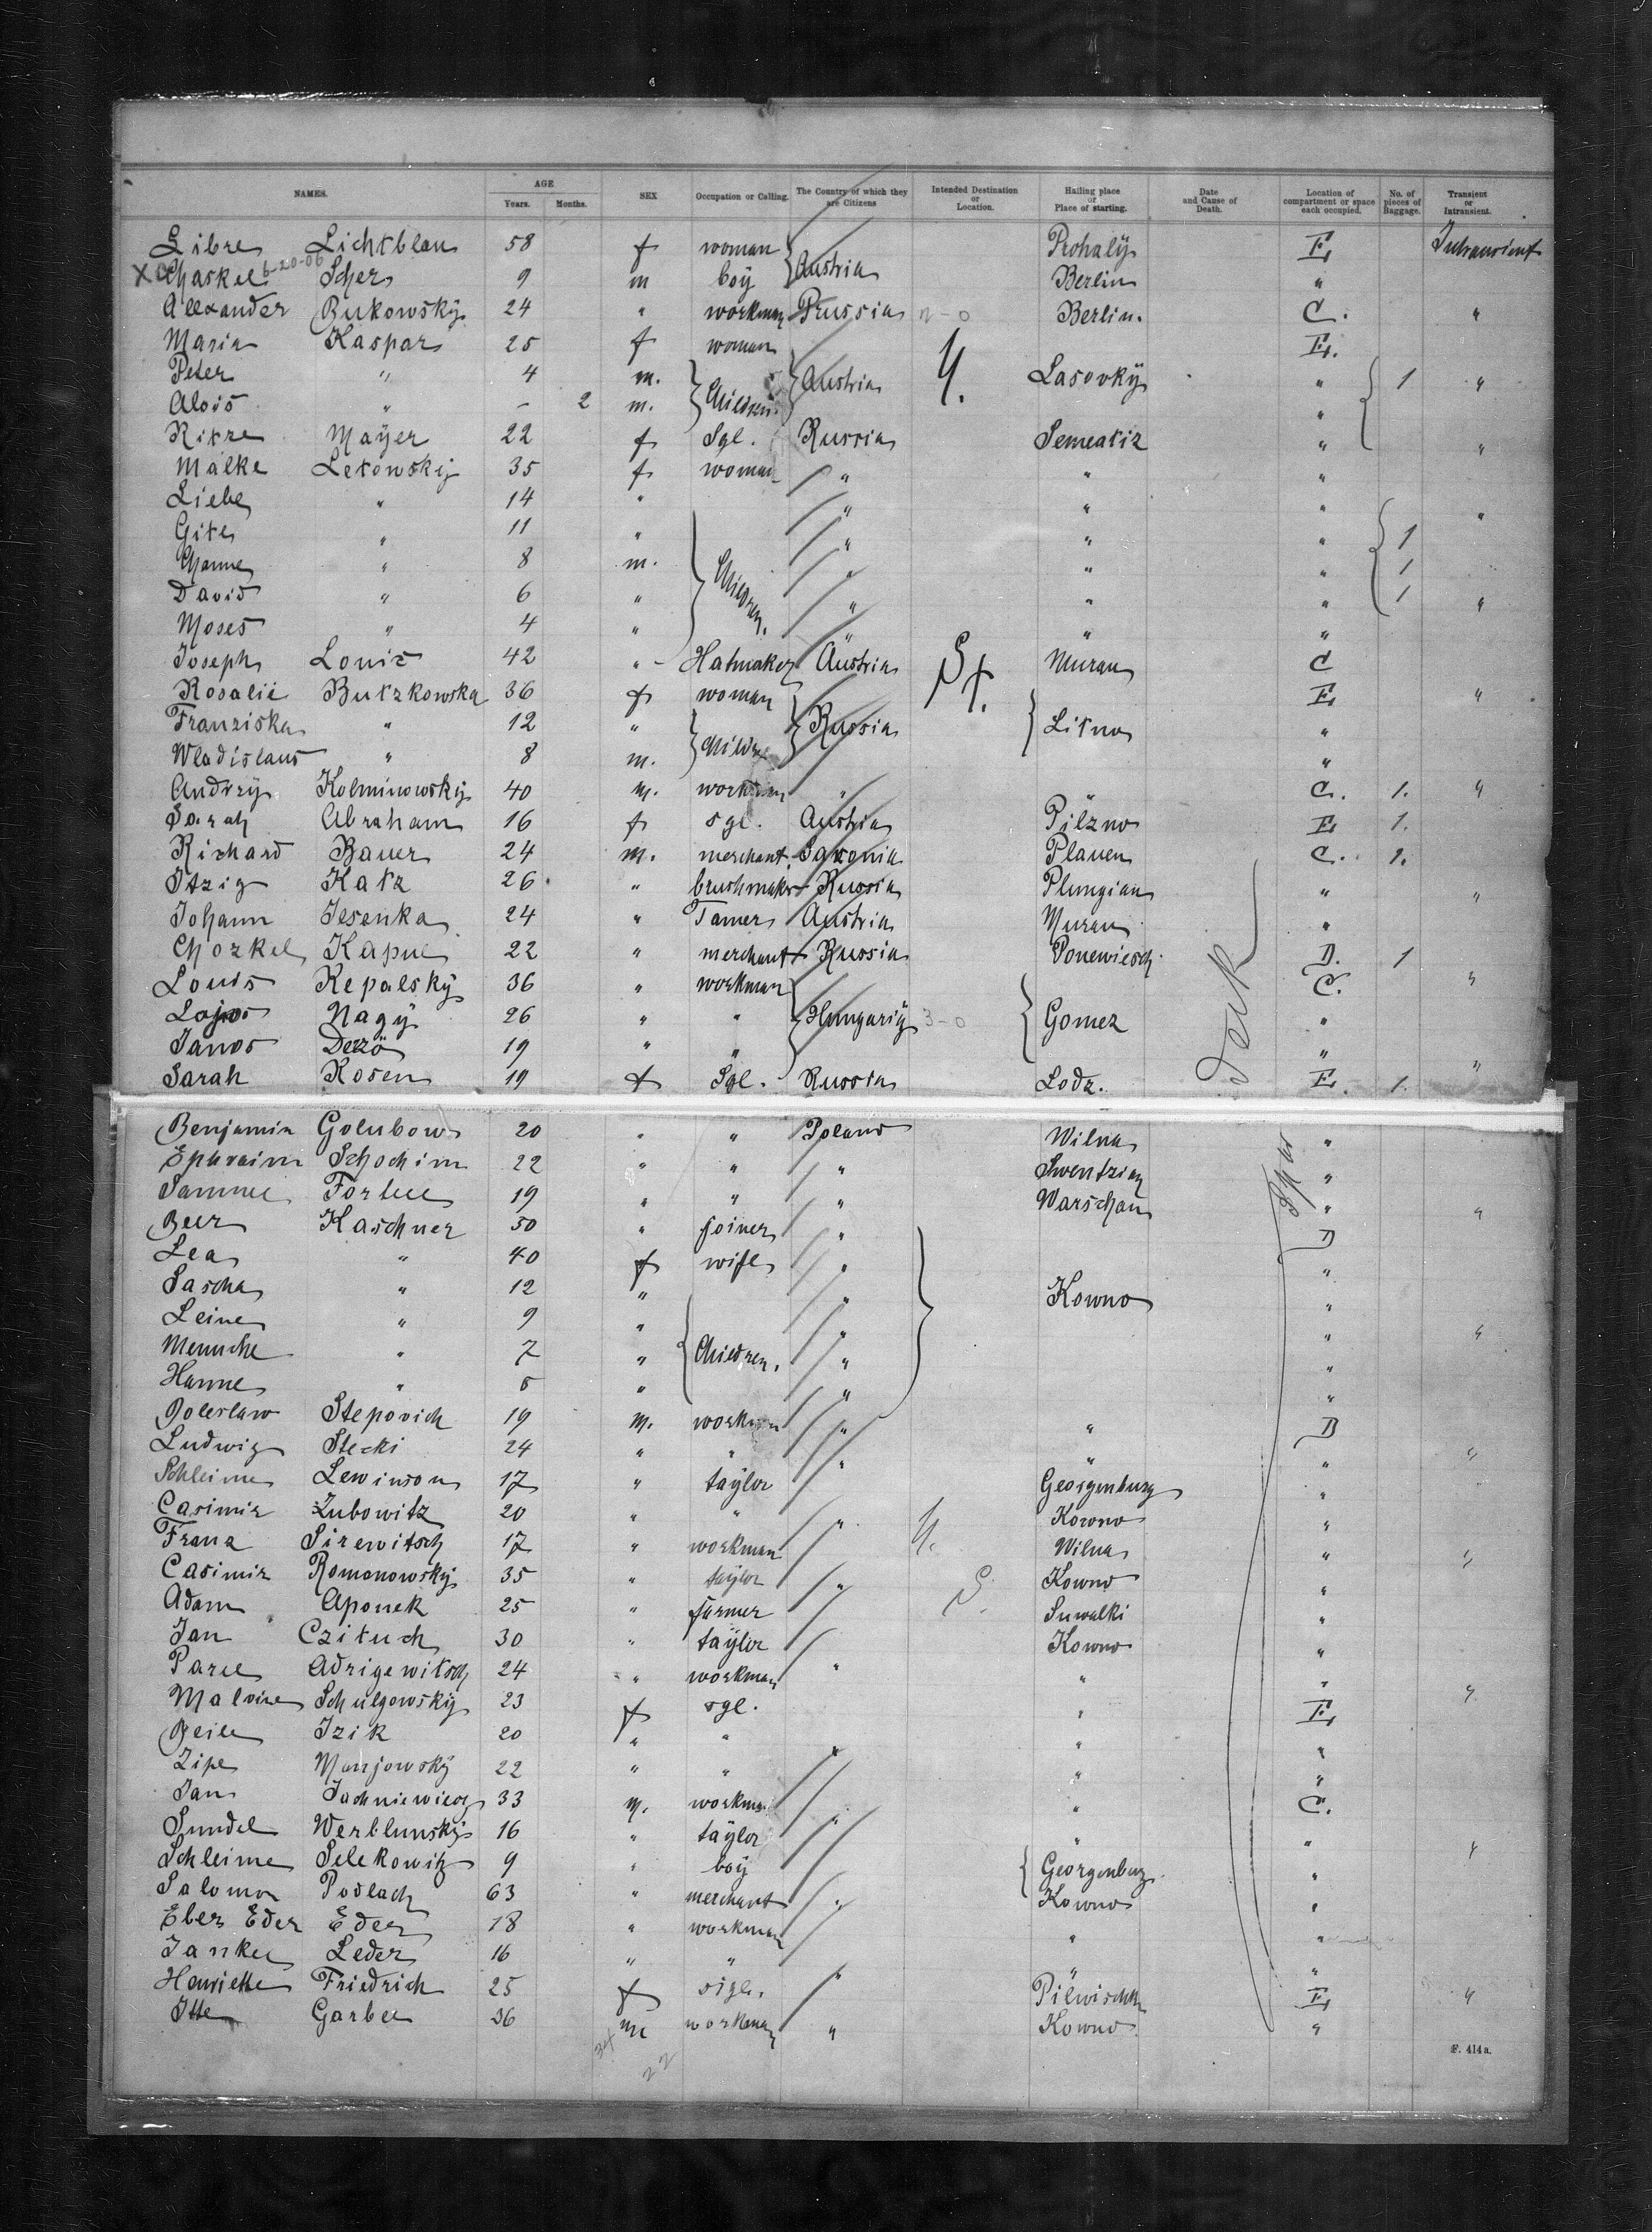 NAMES. AGE Years. Months. SEX Occupation or Calling. The Country of which they are Citizens Intended Destination or Location. Hailing place or Place of starting. Date and Cause of Death. Location of compartment or space each occupied. No. of pieces of Baggage. Transient or Intransient.
Libre Lichtblau 58 f woman Austria Prohaly E Intransient
X Chaskel 6-20-06 Scher 9 m boy Berlin "
Alexander Bukowsky 24 " workman Prussia Berlin. C. "
Maria Kaspar 25 f woman E.
Peter " 4 m. Children. Austria Y. Lasovky " 1 "
Alois " - 2 m. "
Ritze Mayer 22 f Sgl. Russia Semeatiz " "
Malke Letowsky 35 f woman " " "
Liebe " 14 " " " " "
Gite " 11 " " " " 1
Channe " 8 m. Children. " " " 1
David " 6 " " " " 1 "
Moses " 4 " " "
Joseph Louis 42 " Hatmaker Austria Muran C
Rosalie Butzkowska 36 f woman Russia E "
Franziska " 12 " Litno "
Wladislaus " 8 m. "
Andrzy Kolminowsky 40 m. workman " " C. 1. "
Sarah Abraham 16 f sgl. Austria Pilzno E 1.
Richard Bauer 24 m. merchant. Saxonia Plauen C. 1.
Itzig Katz 26 " brushmaker Russia Plungian " "
Johann Jesenka 24 " Tamer Austria Muran "
Chozkel Kapul 22 " merchant Russia Ponewiesch D. 1
Louis Repalsky 36 " workman Hungariy C. "
Lajos Nagy 26 " " 3-0 Gomez "
Janos Derzö 19 " " "
Sarah Rosen 19 f Sgl. Russia Lodz. E. 1. "
Benjamin Golubow 20 " " Poland Wilna "
Ephraim Schochim 22 " " " Swentzian "
Samuel Forbel 19 " " " Warschau " "
Beer Kaschner 50 " joiner " D
Lea " 40 f wife " "
Sascha " 12 " " Kowno "
Leine " 9 " Children. " " "
Menuche " 7 " " "
Hanne " 5 " " "
Boleslaw Stepovich 19 m. workman " " D
Ludwig Stecki 24 " " " " " "
Schleime Lewinson 17 " taylor Georgenburg "
Casimir Zubowitz 20 " " " Kowno "
Franz Sirewitsch 17 " workman Y. Wilna " "
Casimir Romonowsky 35 " taylor " S. Kowno "
Adam Aponek 25 " farmer Suwalki "
Jan Czituch 30 " taylor Kowno "
Parel Adrigewitsch 24 " workman " " "
Malvine Schulgowsky 23 f sgl. " E "
Beile Izik 20 " " " "
Zipe Manjowsky 22 " " " " "
Jan Jachniewicz 33 m. workman " C.
Sundel Werblunsky 16 " taylor " " " "
Schleime Selekowitz 9 " boy Georgenburg "
Salomon Podlach 63 " merchant " Kowno "
Eber Eder Eder 18 " workman " "
Jankel Leder 16 " " " "
Henriette Friedrich 25 f sigl. " Pilwischki E "
Itte Garbel 36 m workman " Kowno "
34
22
F. 414a.